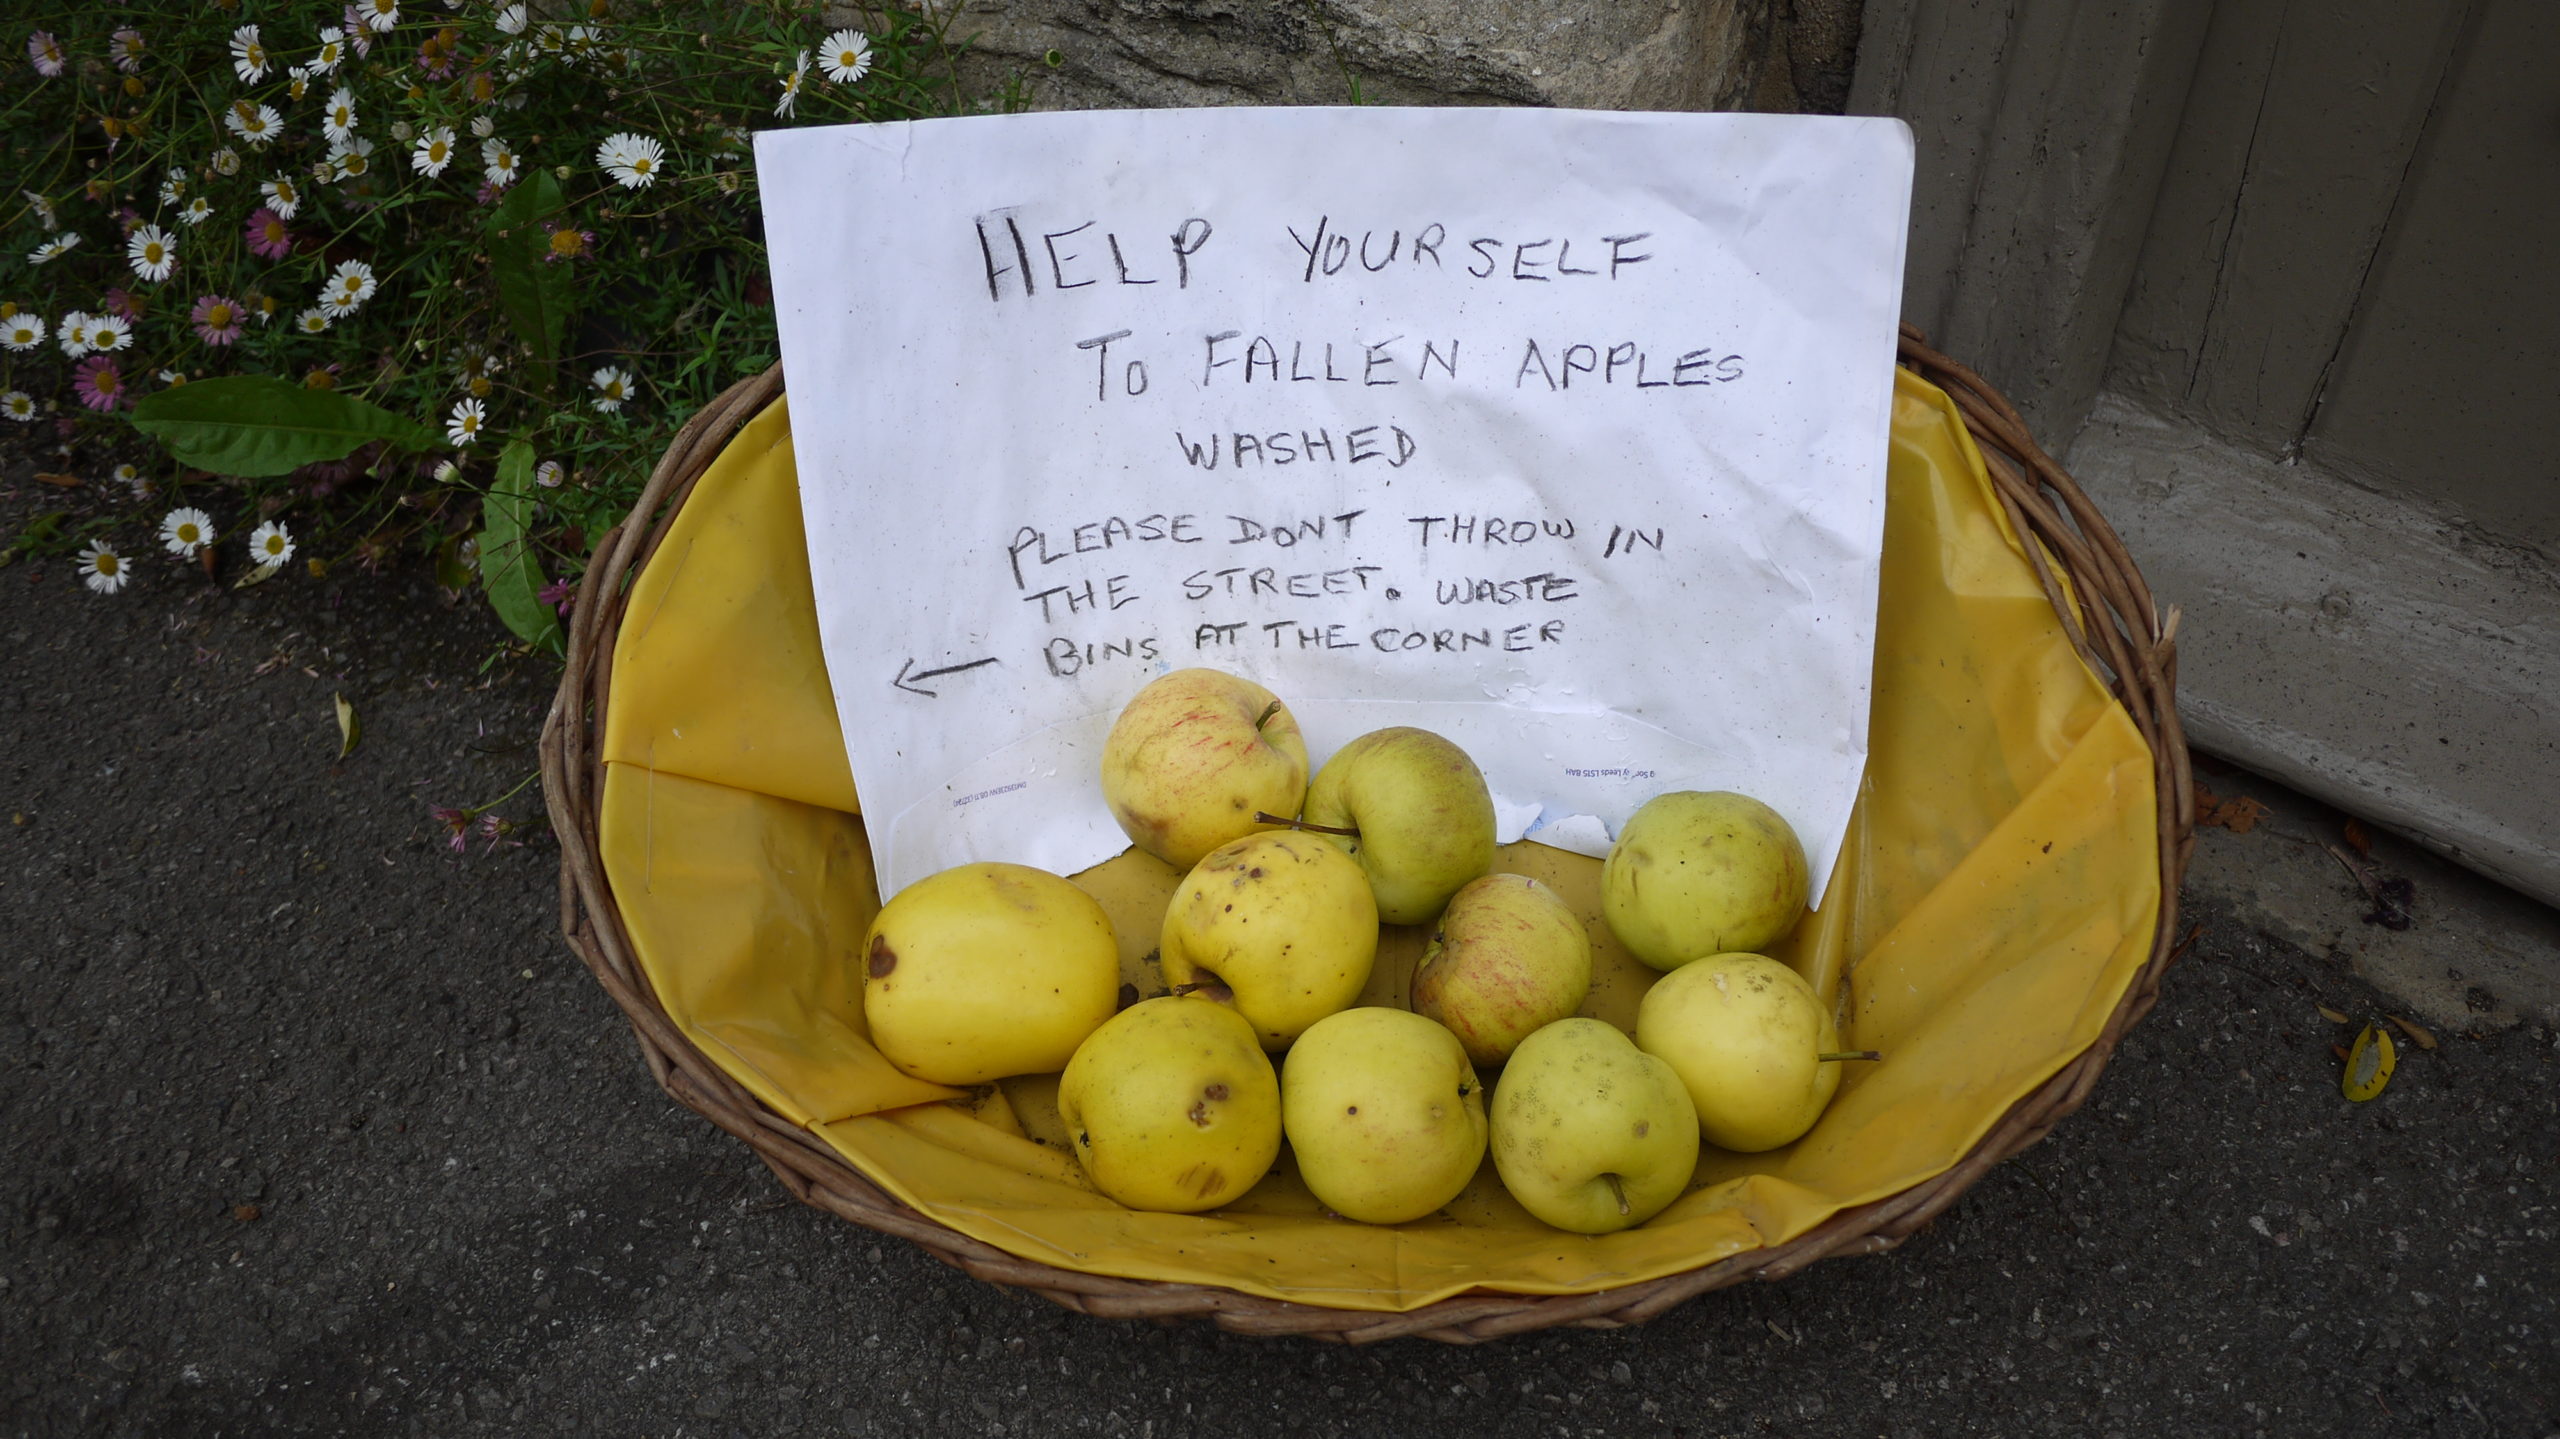 HELP YOURSELF
TO FALLEN APPLES
WASHED
PLEASE DONT THROW IN
THE STREET. WASTE
BINS AT THE CORNER
Leeds LS15 8AH